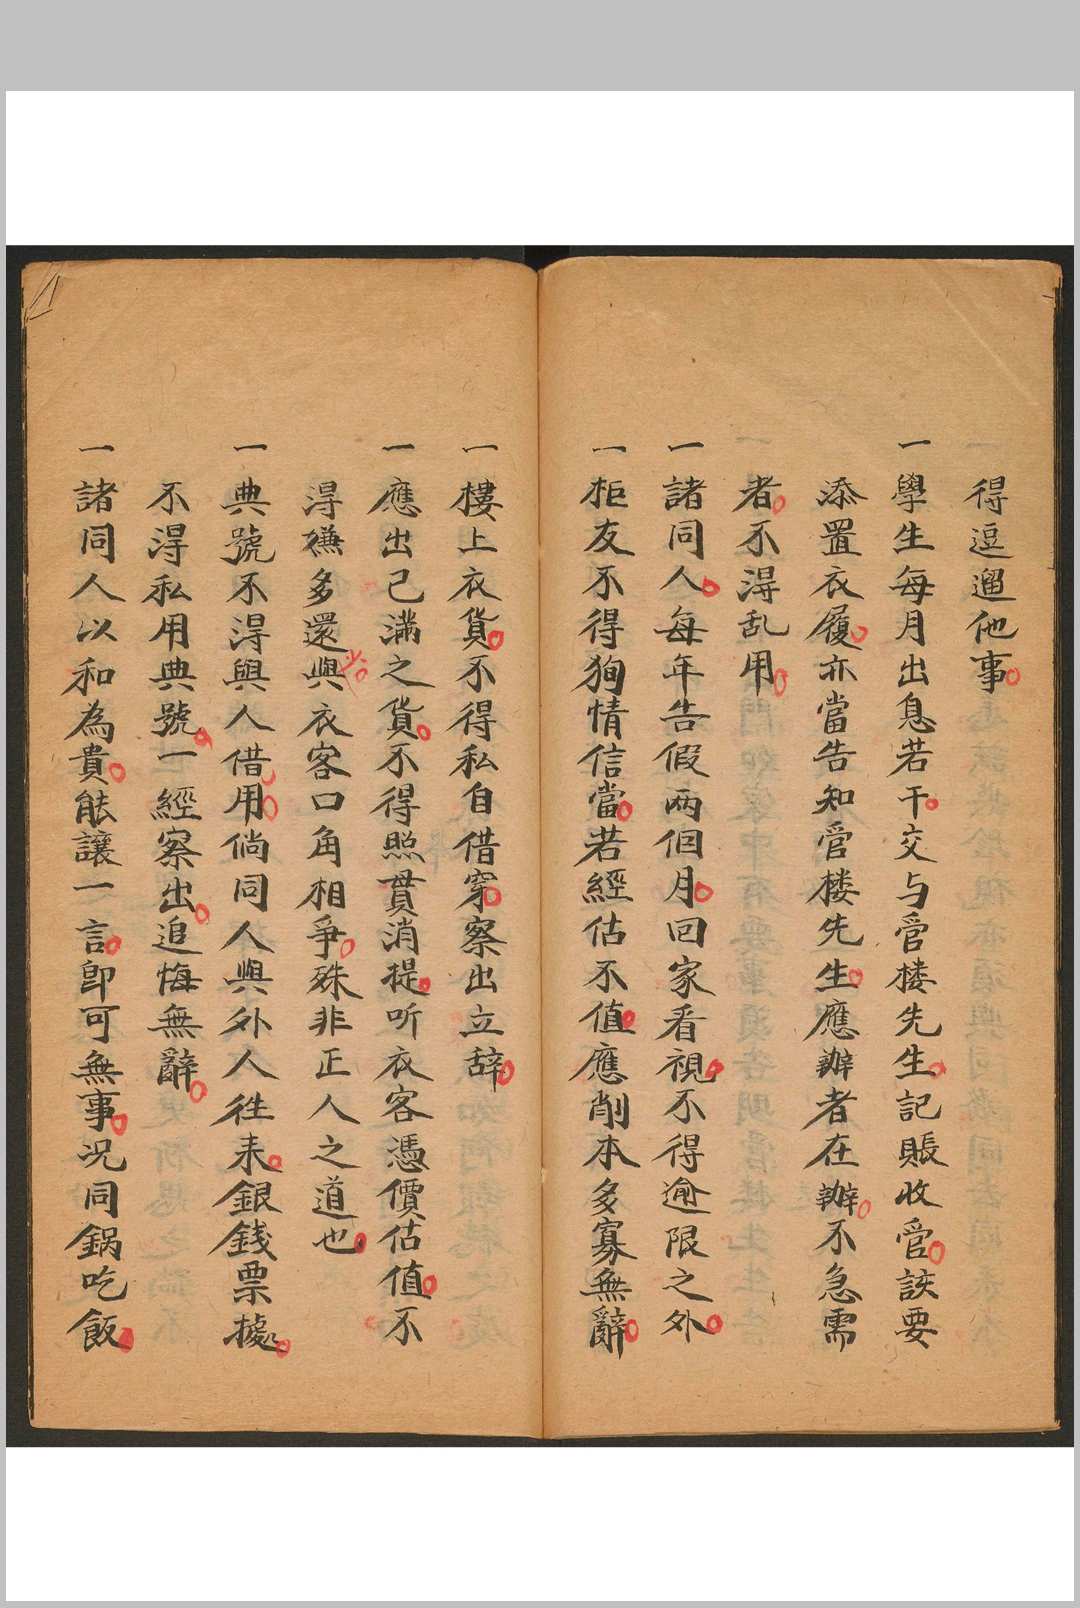 得逗遛他事
一學生每月出息若干交与管楼先生記賬收管該要
添置衣履亦當告知管楼先生應辦者在辦不急需
者不淂乱用
一諸同人每年告假两個月回家看視不得逾限之外
一柜友不得狥情信當若經估不值應削本多寡無辭
一樓上衣貨不得私自借穿察出立辞
一應出已滿之貨不得照貫消提听衣客憑價估值不
淂嫌多還與衣客口角相爭殊非正人之道也
一典號不淂與人借用倘同人與外人徃来銀錢票據
不淂私用典號一經察出追悔無辭
一諸同人以和為貴能讓一言即可無事况同鍋吃飯